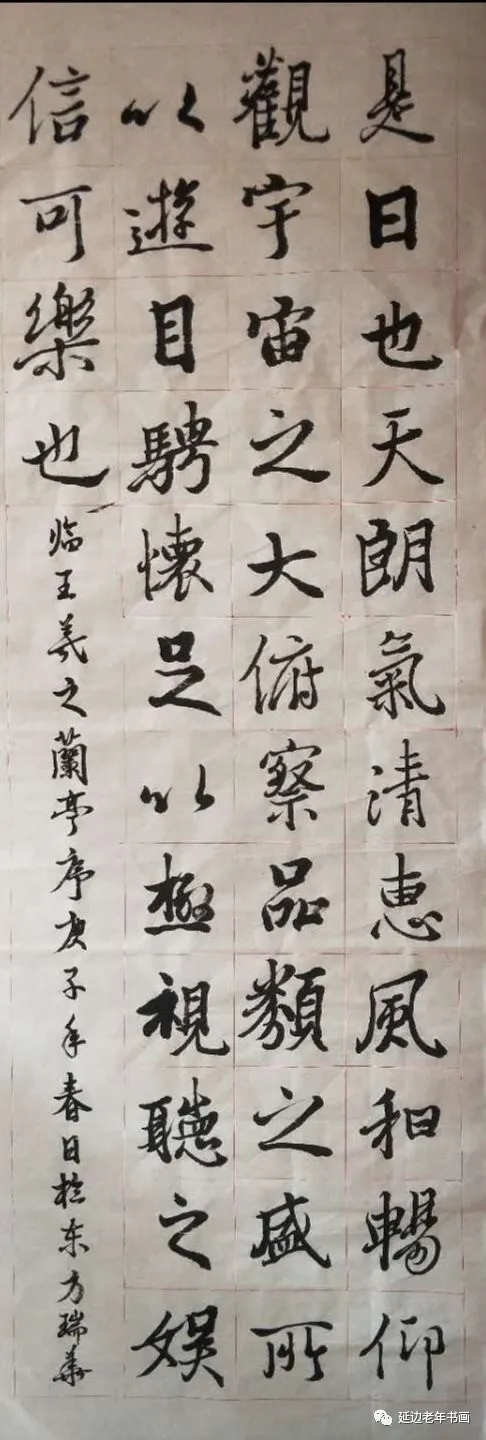 是日也天朗氣清惠風和暢仰
觀宇宙之大俯察品類之盛所
以遊目騁懷足以極視聽之娛
信可樂也
臨王羲之蘭亭序庚子年春日於东方瑞華
延边老年书画